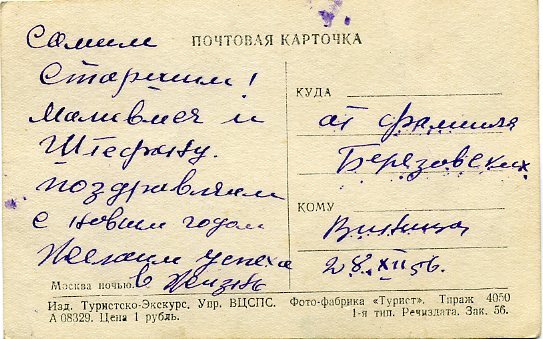 ПОЧТОВАЯ КАРТОЧКА
Самим
Старшим!
и
Штефану.
поздравляем
с новым годом
Желаем успеха
в Жизнь
КУДА
от фамилия
Березовских
КОМУ
Винница
28.XII 56.
Москва ночью.
Изд. Туристско-Экскурс. Упр. ВЦСПС. Фото-фабрика «Турист». Тираж 4050
А 08329. Цена 1 рубль. 1-я тип. Речиздата. Зак. 56.